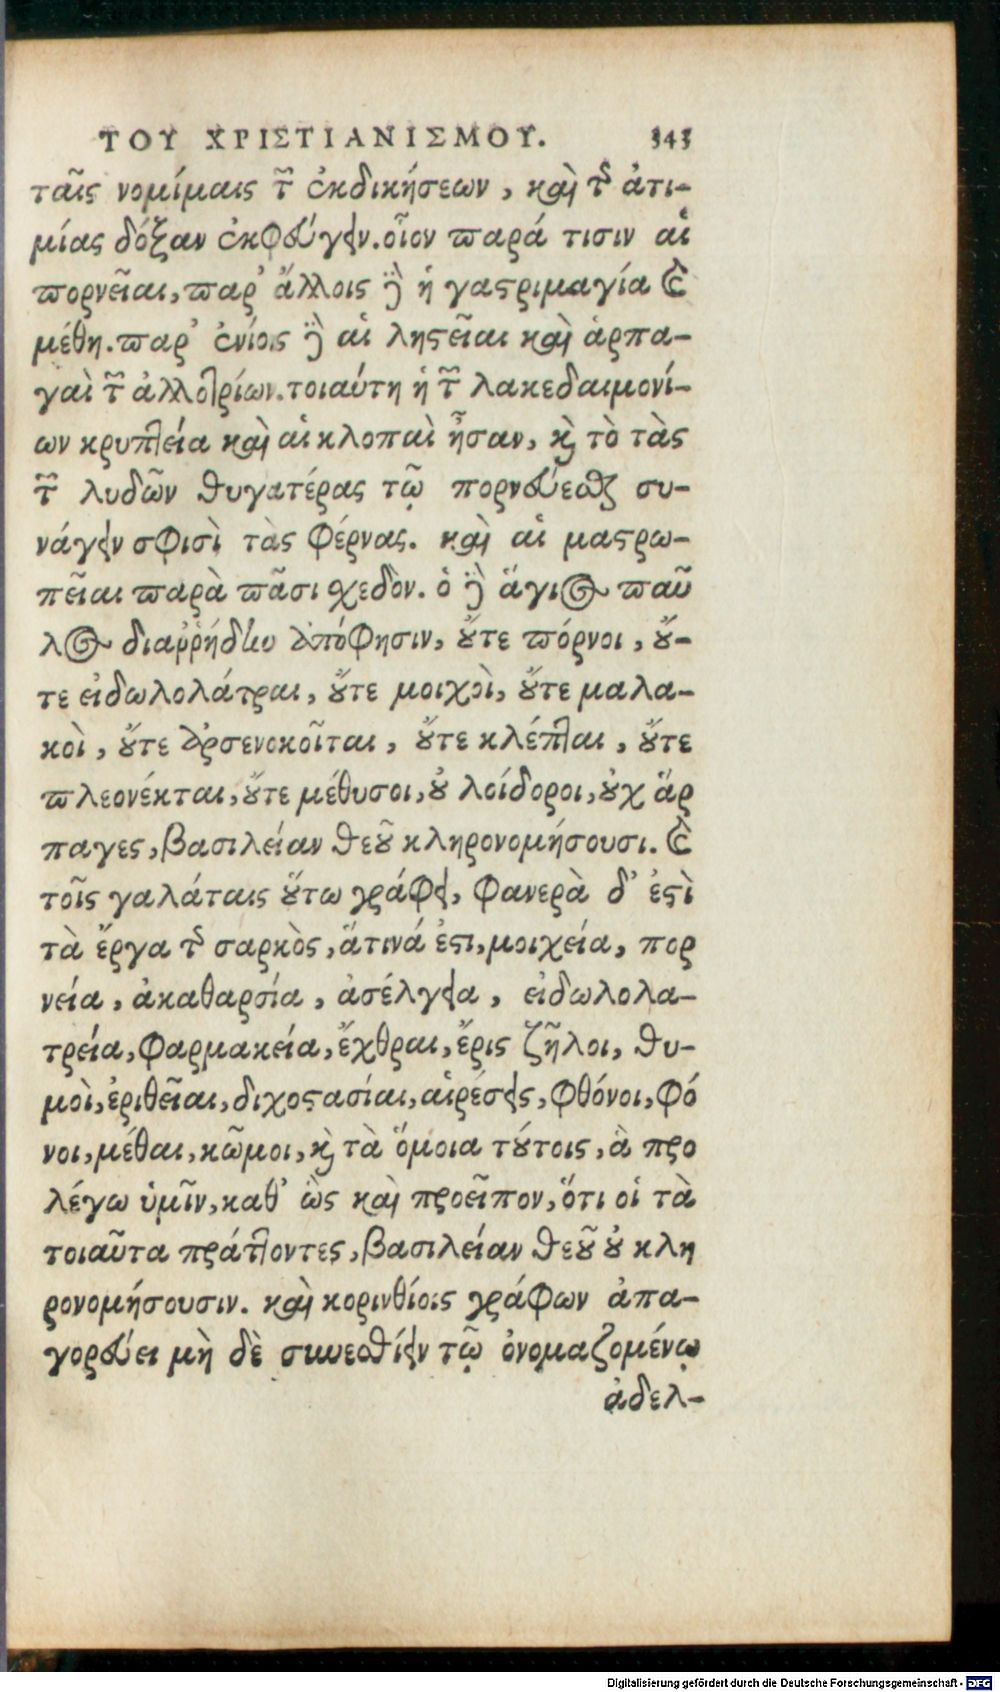 ΤΟΥ ΧΡΙΣΤΙΑΝΙΣΜΟΥ. 343
ταῖς νομίμαις τῶν ἐκδικήσεων, καὶ τῆς ἀτι-
μίας δόξαν ἐκφεύγειν. οἷον παρά τισιν αἱ
πορνεῖαι, παρ' ἄλλοις δὲ ἡ γαστριμαγία καὶ
μέθη. παρ' ἐνίοις δὲ αἱ ληστεῖαι καὶ ἁρπα-
γαὶ τῶν ἀλλοτρίων. τοιαύτη ἡ τῶν λακεδαιμονί-
ων κρυπτεία καὶ αἱ κλοπαὶ ἦσαν, καὶ τὸ τὰς
τῶν λυδῶν θυγατέρας τῷ πορνεύεσθαι συ-
νάγειν σφισὶ τὰς φέρνας. καὶ αἱ μαστρω-
πεῖαι παρὰ πᾶσι σχεδὸν. ὁ δὲ ἅγιος παῦ
λος διαῤῥήδην ἀπόφησιν, οὔτε πόρνοι, οὔ-
τε εἰδωλολάτραι, οὔτε μοιχοὶ, οὔτε μαλα-
κοὶ, οὔτε ἀρσενοκοῖται, οὔτε κλέπται, οὔτε
πλεονέκται, οὔτε μέθυσοι, οὐ λοίδοροι, οὐχ ἅρ
παγες, βασιλείαν θεοῦ κληρονομήσουσι. καὶ
τοῖς γαλάταις οὕτω γράφει, φανερὰ δ' ἐστὶ
τὰ ἔργα τῆς σαρκὸς, ἅτινά ἐστι, μοιχεία, πορ
νεία, ἀκαθαρσία, ἀσέλγεια, εἰδωλολα-
τρεία, φαρμακεία, ἔχθραι, ἔρις ζῆλοι, θυ-
μοὶ, ἐριθεῖαι, διχοστασίαι, αἱρέσεις, φθόνοι, φό
νοι, μέθαι, κῶμοι, καὶ τὰ ὅμοια τούτοις, ἃ προ
λέγω ὑμῖν, καθ' ὼς καὶ προεῖπον, ὅτι οἱ τὰ
τοιαῦτα πράττοντες, βασιλείαν θεοῦ οὐ κλη
ρονομήσουσιν. καὶ κορινθίοις γράφων ἀπα-
γορεύει μὴ δὲ συνεσθίειν τῷ ὀνομαζομένῳ
ἀδελ-
Digitalisierung gefördert durch die Deutsche Forschungsgemeinschaft - DFG